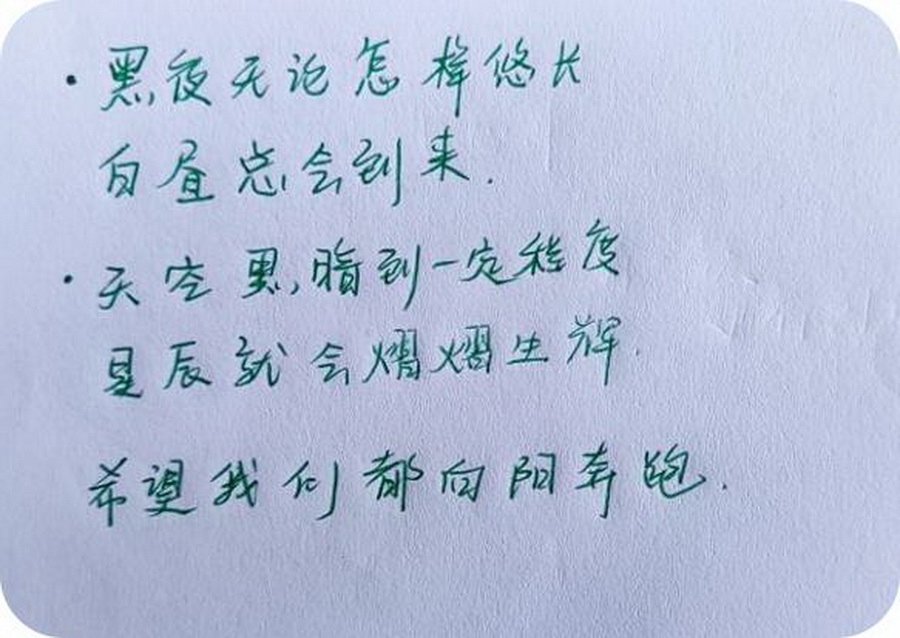 ·黑夜无论怎样悠长
白昼总会到来.
·天空黑暗到一定程度
星辰就会熠熠生辉.
希望我们都向阳奔跑.